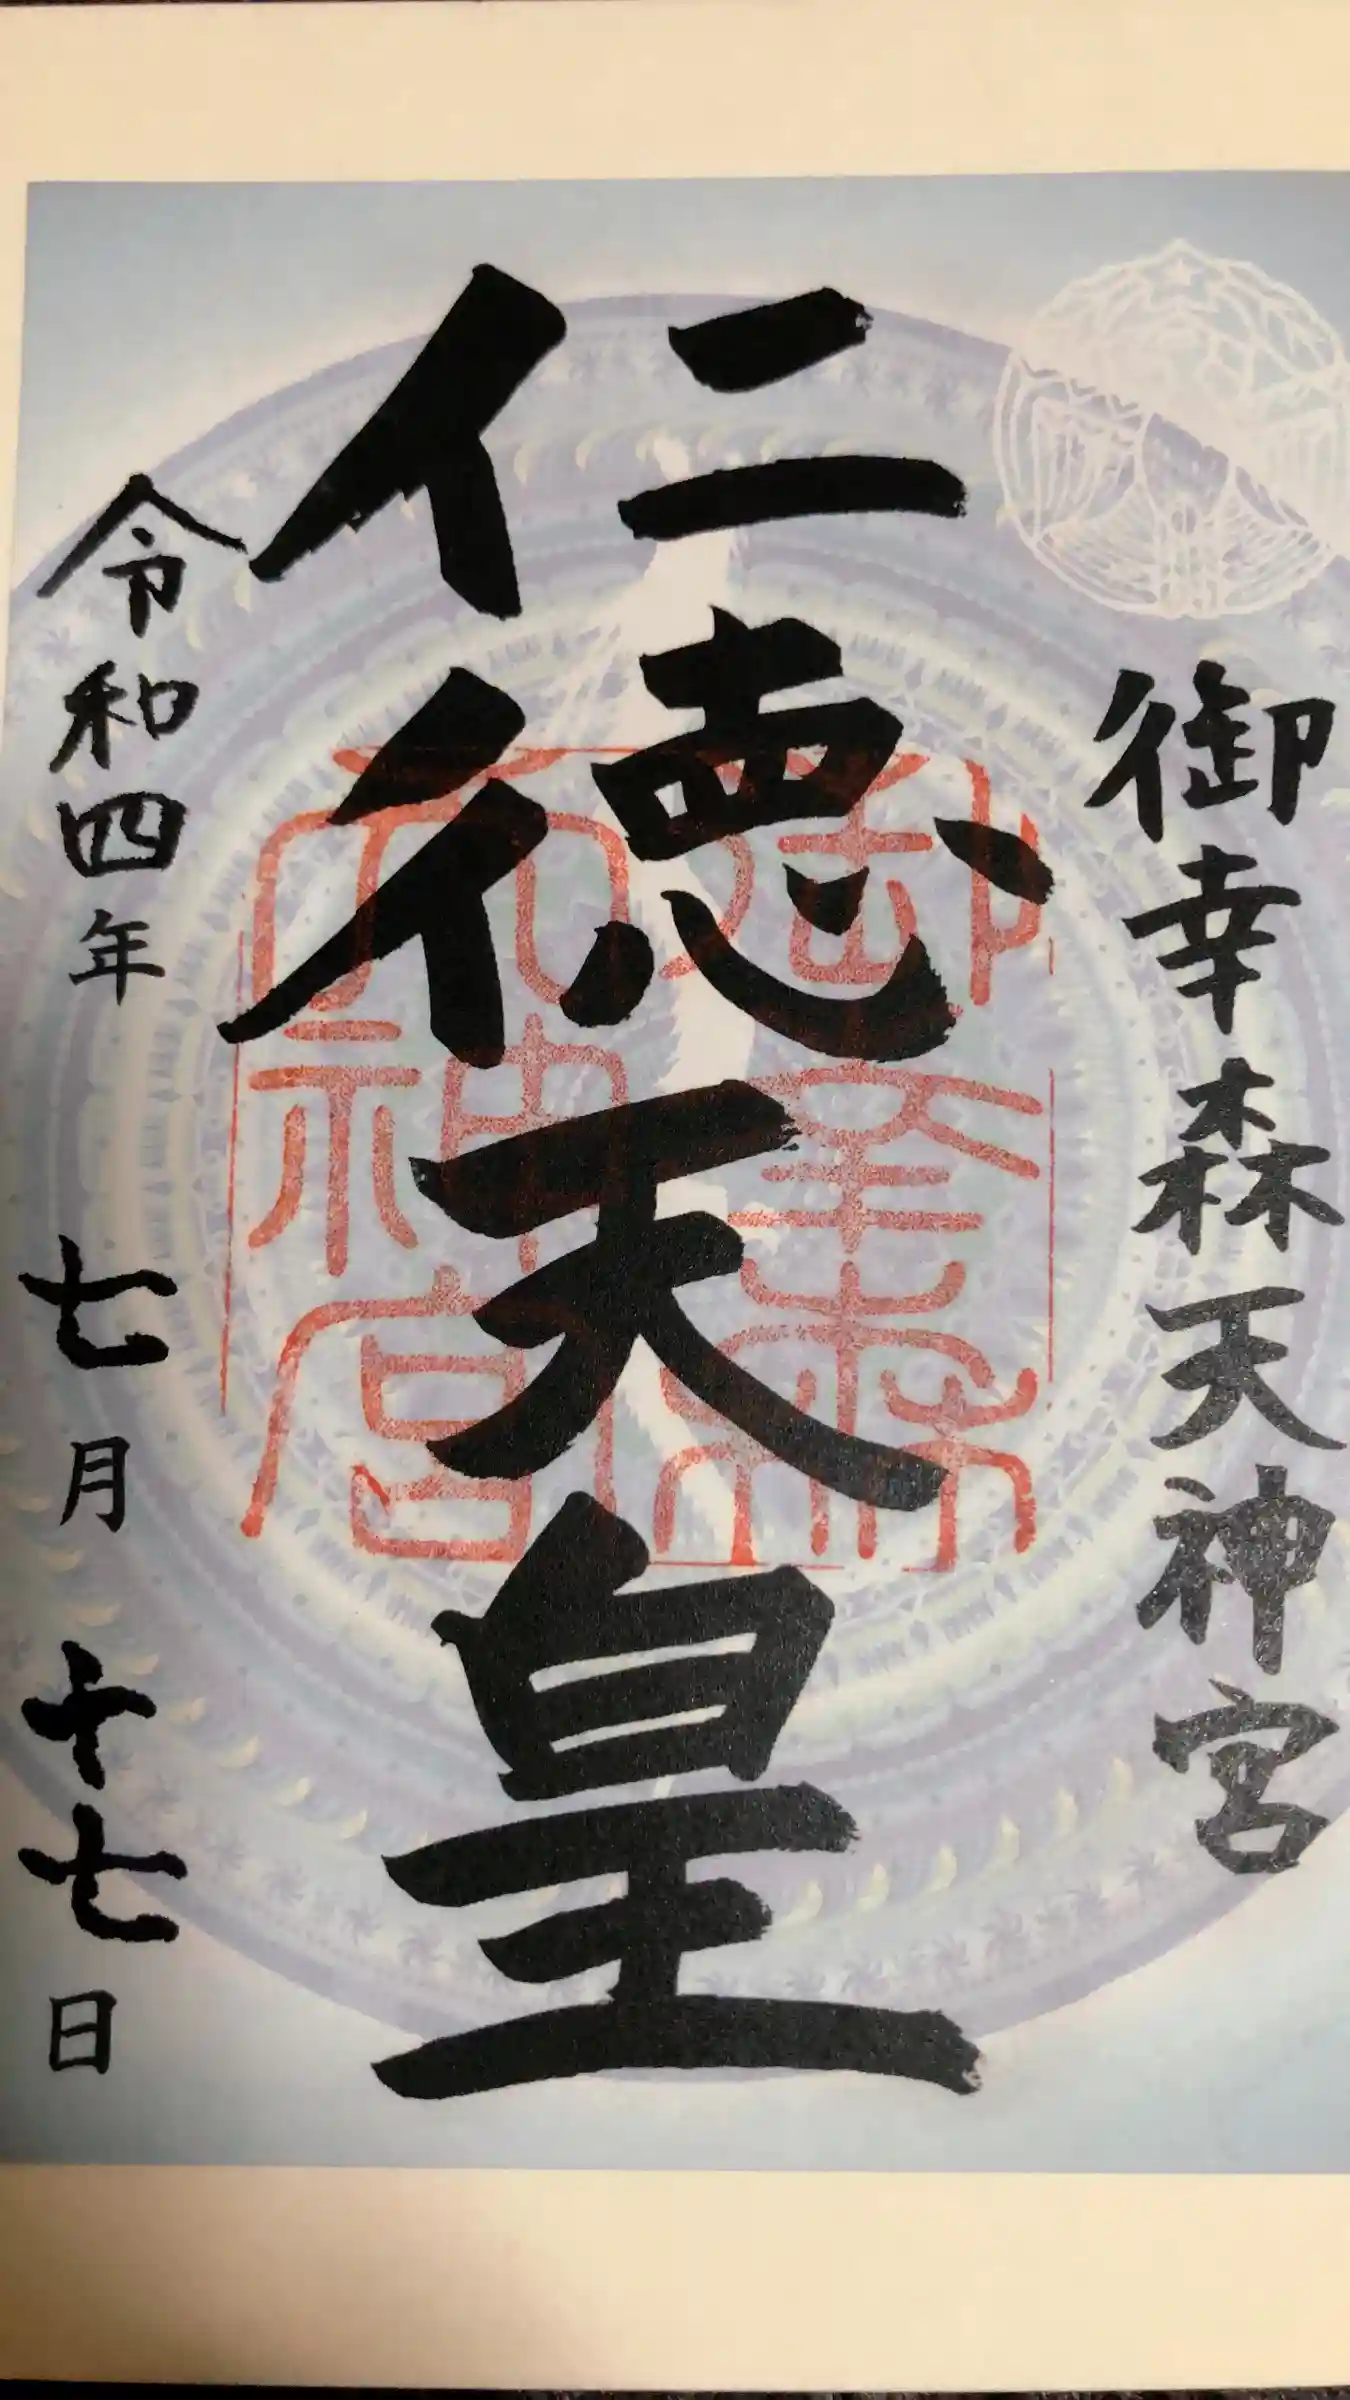 御幸森天神宮
仁徳天皇
御幸森
天神宮
令和四年七月十七日